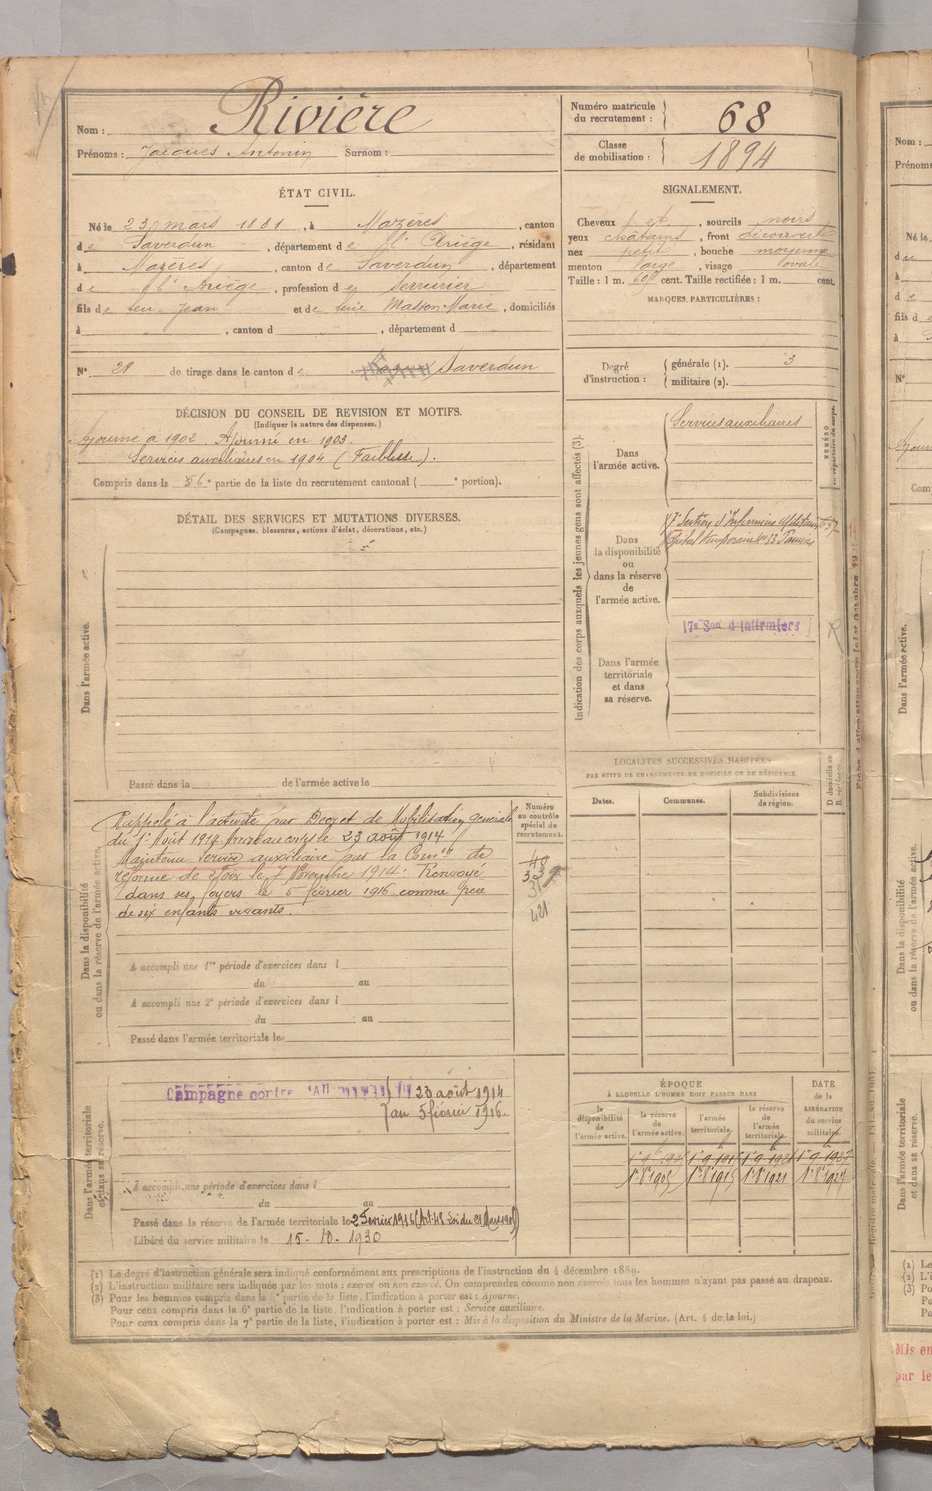 Nom : Rivière
Prénoms : Jacques Antonin Surnom :
Numéro matricule
du recrutement : 68
Classe
de mobilisation : 1894
ÉTAT CIVIL.
Né le 23 mars 1881, à Mazères, canton
de Saverdun, département de l'Ariège, résidant
à Mazères, canton de Saverdun, département
de l'Ariège, profession de Serrurier
fils de feu Jean et de feue Masson Marie, domiciliés
à , canton d , département d
N° 28 de tirage dans le canton de Saverdun
DÉCISION DU CONSEIL DE REVISION ET MOTIFS.
(Indiquer la nature des dispenses.)
Ajourné à 1902. Ajourné en 1903.
Services auxiliaires en 1904 (Faiblesse).
Compris dans la 6e partie de la liste du recrutement cantonal ( e portion).
SIGNALEMENT.
Cheveux et, sourcils noirs
yeux châtains, front découvert
nez petit, bouche moyenne
menton large, visage ovale
Taille : 1 m. 60 cent. Taille rectifiée : 1 m. cent.
MARQUES PARTICULIÈRES :
Degré
d'instruction :
générale (1). 3
militaire (2).
Indication des corps auxquels les jeunes gens sont affectés (3).
Dans
l'armée active.
Services auxiliaires
NUMÉRO
au répertoire du corps.
Dans
la disponibilité
ou
dans la réserve
de
l'armée active.
17e Section d'Infirmiers Militaires
Hôpital Temporaire N° 23 Pamiers
17e Son d'Infirmiers
Dans l'armée
territoriale
et dans
sa réserve.
DÉTAIL DES SERVICES ET MUTATIONS DIVERSES.
(Campagnes, blessures, actions d'éclat, décorations, etc.)
Dans l'armée active.
Passé dans la de l'armée active le
LOCALITÉS SUCCESSIVES HABITÉES
PAR SUITE DE CHANGEMENTS DE DOMICILE OU DE RÉSIDENCE
Dates. Communes. Subdivisions
de région.
D domicile ou
R résidence.
Dans la disponibilité
ou dans la réserve de l'armée active
Rappelé à l'activité par Décret de Mobilisation générale
du 1er Août 1914. Arrivé au corps le 23 août 1914
Maintenu Service auxiliaire par la Comon de
réforme de Foix le 7 Novembre 1914. Renvoyé
dans ses foyers le 5 février 1916 comme père
de six enfants vivants.
Numéro
au contrôle
spécial du
recrutement.
40
421
A accompli une 1re période d'exercices dans l
du au
A accompli une 2e période d'exercices dans l
du au
Passé dans l'armée territoriale le
Dans l'armée territoriale
et dans sa réserve.
Campagne contre l'Allemagne 23 août 1914
au 5 février 1916.
A accompli une période d'exercices dans l
du au
Passé dans la réserve de l'armée territoriale le 2 Février 1916 (Art. 48 Loi du 21 Mars 1905)
Libéré du service militaire le 15-10-1930
ÉPOQUE
À LAQUELLE L'HOMME DOIT PASSER DANS
la
disponibilité
de
l'armée active.
la réserve
de
l'armée active.
l'armée
territoriale.
la réserve
de
l'armée
territoriale.
DATE
de la
LIBÉRATION
du service
militaire.
1er 8bre 1905 1er 8bre 1915 1er 8bre 1921 1er 8bre 1927
(1) Le degré d'instruction générale sera indiqué conformément aux prescriptions de l'instruction du 4 décembre 1889.
(2) L'instruction militaire sera indiquée par les mots : exercé ou non exercé. On comprendra comme non exercés tous les hommes n'ayant pas passé au drapeau.
(3) Pour les hommes compris dans la 5e partie de la liste, l'indication à porter est : Ajourné.
Pour ceux compris dans la 6e partie de la liste, l'indication à porter est : Service auxiliaire.
Pour ceux compris dans la 7e partie de la liste, l'indication à porter est : Mis à la disposition du Ministre de la Marine. (Art. 4 de la loi.)
Mis en
par le